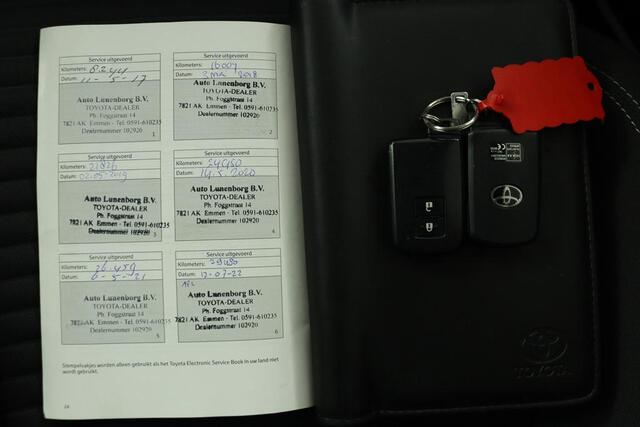 Service uitgevoerd
Kilometers: 8244
Datum: 11-5-17
Auto Lunenborg B.V.
TOYOTA-DEALER
Ph. Foggstraat 14
7821 AK Emmen - Tel. 0591-610235
Dealernummer 102920
1
Service uitgevoerd
Kilometers: 16009
Datum: 3 mei 2018
Auto Lunenborg B.V.
TOYOTA-DEALER
Ph. Foggstraat 14
7821 AK Emmen - Tel. 0591-610235
Dealernummer 102920
2
Service uitgevoerd
Kilometers: 21826
Datum: 02-05-2019
Auto Lunenborg B.V.
TOYOTA-DEALER
Ph. Foggstraat 14
7821 AK Emmen - Tel. 0591-610235
Dealernummer 102920
3
Service uitgevoerd
Kilometers: 24950
Datum: 14.5.2020
Auto Lunenborg B.V.
TOYOTA-DEALER
Ph. Foggstraat 14
7821 AK Emmen - Tel. 0591-610235
Dealernummer 102920
4
Service uitgevoerd
Kilometers: 26.459
Datum: 6-5-21
Auto Lunenborg B.V.
TOYOTA-DEALER
Ph. Foggstraat 14
7821 AK Emmen - Tel. 0591-610235
Dealernummer 102920
5
Service uitgevoerd
Kilometers:
Datum: 12-07-22
Auto Lunenborg B.V.
TOYOTA-DEALER
Ph. Foggstraat 14
7821 AK Emmen - Tel. 0591-610235
Dealernummer 102920
6
Stempelvakjes worden alleen gebruikt als het Toyota Electronic Service Book in uw land niet
wordt gebruikt.
TOYOTA